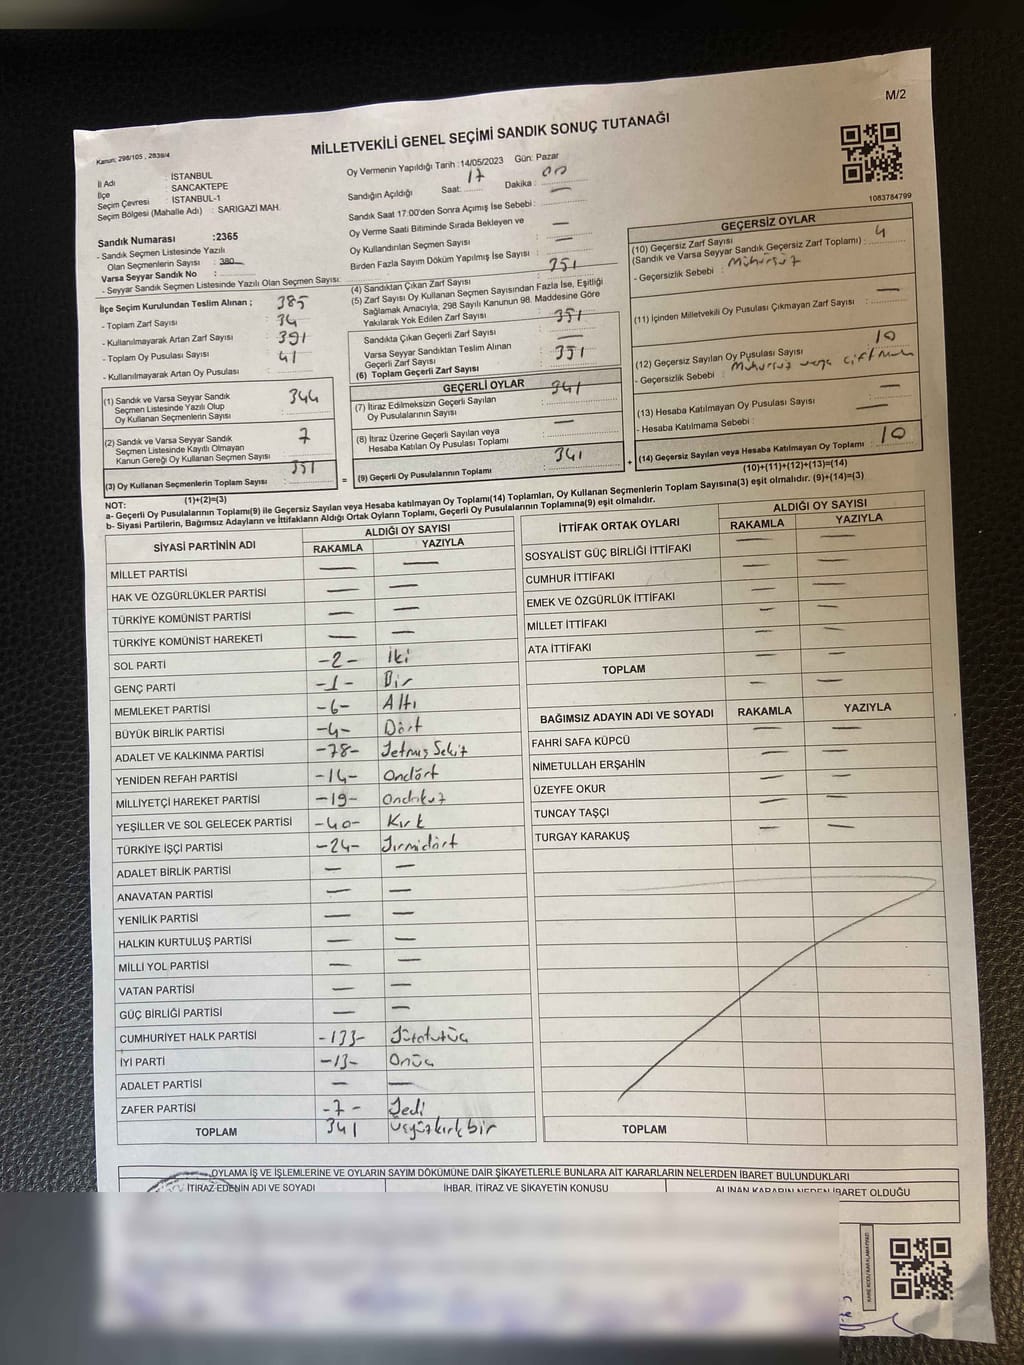 M/2
Kanun: 298/105 , 2839/4
MİLLETVEKİLİ GENEL SEÇİMİ SANDIK SONUÇ TUTANAĞI
İl Adı : İSTANBUL
İlçe : SANCAKTEPE
Seçim Çevresi : İSTANBUL-1
Seçim Bölgesi (Mahalle Adı) : SARIGAZİ MAH.
Oy Vermenin Yapıldığı Tarih :14/05/2023 Gün: Pazar
Sandığın Açıldığı Saat: 17 Dakika : 00
Sandık Saat 17:00'den Sonra Açımış İse Sebebi: —
Oy Verme Saati Bitiminde Sırada Bekleyen ve
Oy Kullandırılan Seçmen Sayısı : —
Birden Fazla Sayım Döküm Yapılmış İse Sayısı : —
1083784799
Sandık Numarası :2365
- Sandık Seçmen Listesinde Yazılı
Olan Seçmenlerin Sayısı : 380
Varsa Seyyar Sandık No :
- Seyyar Sandık Seçmen Listesinde Yazılı Olan Seçmen Sayısı:
İlçe Seçim Kurulundan Teslim Alınan ;
- Toplam Zarf Sayısı 385
- Kullanılmayarak Artan Zarf Sayısı : 34
- Toplam Oy Pusulası Sayısı : 391
- Kullanılmayarak Artan Oy Pusulası : 41
(1) Sandık ve Varsa Seyyar Sandık
Seçmen Listesinde Yazılı Olup
Oy Kullanan Seçmenlerin Sayısı : 344
(2) Sandık ve Varsa Seyyar Sandık
Seçmen Listesinde Kayıtlı Olmayan
Kanun Gereği Oy Kullanan Seçmen Sayısı : 7
(3) Oy Kullanan Seçmenlerin Toplam Sayısı : 351
(1)+(2)=(3)
(4) Sandıktan Çıkan Zarf Sayısı : 351
(5) Zarf Sayısı Oy Kullanan Seçmen Sayısından Fazla İse, Eşitliği
Sağlamak Amacıyla, 298 Sayılı Kanunun 98. Maddesine Göre
Yakılarak Yok Edilen Zarf Sayısı :
Sandıkta Çıkan Geçerli Zarf Sayısı : 351
Varsa Seyyar Sandıktan Teslim Alınan
Geçerli Zarf Sayısı : —
(6) Toplam Geçerli Zarf Sayısı : 351
GEÇERLİ OYLAR
(7) İtiraz Edilmeksizin Geçerli Sayılan
Oy Pusulalarının Sayısı : 341
(8) İtiraz Üzerine Geçerli Sayılan veya
Hesaba Katılan Oy Pusulası Toplamı : —
(9) Geçerli Oy Pusulalarının Toplamı : 341
GEÇERSİZ OYLAR
(10) Geçersiz Zarf Sayısı
(Sandık ve Varsa Seyyar Sandık Geçersiz Zarf Toplamı) : 4
- Geçersizlik Sebebi : Mühürsüz
(11) İçinden Milletvekili Oy Pusulası Çıkmayan Zarf Sayısı : —
(12) Geçersiz Sayılan Oy Pusulası Sayısı : 10
- Geçersizlik Sebebi : Mühürsüz veya çift
(13) Hesaba Katılmayan Oy Pusulası Sayısı : —
- Hesaba Katılmama Sebebi : —
(14) Geçersiz Sayılan veya Hesaba Katılmayan Oy Toplamı : 10
(10)+(11)+(12)+(13)=(14)
NOT:
a- Geçerli Oy Pusulalarının Toplamı(9) ile Geçersiz Sayılan veya Hesaba katılmayan Oy Toplamı(14) Toplamları, Oy Kullanan Seçmenlerin Toplam Sayısına(3) eşit olmalıdır. (9)+(14)=(3)
b- Siyasi Partilerin, Bağımsız Adayların ve İttifakların Aldığı Ortak Oyların Toplamı, Geçerli Oy Pusulalarının Toplamına(9) eşit olmalıdır.
SİYASİ PARTİNİN ADI ALDIĞI OY SAYISI
RAKAMLA YAZIYLA
MİLLET PARTİSİ — —
HAK VE ÖZGÜRLÜKLER PARTİSİ — —
TÜRKİYE KOMÜNİST PARTİSİ — —
TÜRKİYE KOMÜNİST HAREKETİ — —
SOL PARTİ -2- İki
GENÇ PARTİ -1- Bir
MEMLEKET PARTİSİ -6- Altı
BÜYÜK BİRLİK PARTİSİ -4- Dört
ADALET VE KALKINMA PARTİSİ -78- Yetmiş Sekiz
YENİDEN REFAH PARTİSİ -14- Ondört
MİLLİYETÇİ HAREKET PARTİSİ -19- Ondokuz
YEŞİLLER VE SOL GELECEK PARTİSİ -40- Kırk
TÜRKİYE İŞÇİ PARTİSİ -24- Yirmidört
ADALET BİRLİK PARTİSİ — —
ANAVATAN PARTİSİ — —
YENİLİK PARTİSİ — —
HALKIN KURTULUŞ PARTİSİ — —
MİLLİ YOL PARTİSİ — —
VATAN PARTİSİ — —
GÜÇ BİRLİĞİ PARTİSİ — —
CUMHURİYET HALK PARTİSİ -133- Yüzotuzüç
İYİ PARTİ -13- Onüç
ADALET PARTİSİ — —
ZAFER PARTİSİ -7- Yedi
TOPLAM 341 Üçyüzkırkbir
İTTİFAK ORTAK OYLARI ALDIĞI OY SAYISI
RAKAMLA YAZIYLA
SOSYALİST GÜÇ BİRLİĞİ İTTİFAKI — —
CUMHUR İTTİFAKI — —
EMEK VE ÖZGÜRLÜK İTTİFAKI — —
MİLLET İTTİFAKI — —
ATA İTTİFAKI — —
TOPLAM — —
BAĞIMSIZ ADAYIN ADI VE SOYADI RAKAMLA YAZIYLA
FAHRİ SAFA KÜPCÜ — —
NİMETULLAH ERŞAHİN — —
ÜZEYFE OKUR — —
TUNCAY TAŞÇI — —
TURGAY KARAKUŞ — —
TOPLAM
OYLAMA İŞ VE İŞLEMLERİNE VE OYLARIN SAYIM DÖKÜMÜNE DAİR ŞİKAYETLERLE BUNLARA AİT KARARLARIN NELERDEN İBARET BULUNDUKLARI
İTİRAZ EDENİN ADI VE SOYADI İHBAR, İTİRAZ VE ŞİKAYETİN KONUSU ALINAN KARARIN NEDEN İBARET OLDUĞU